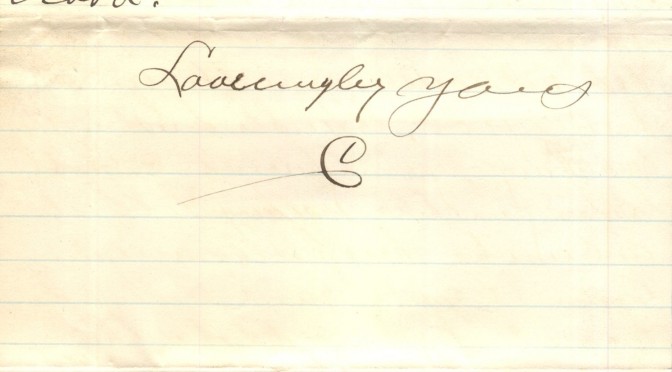 Lovingly yours
C